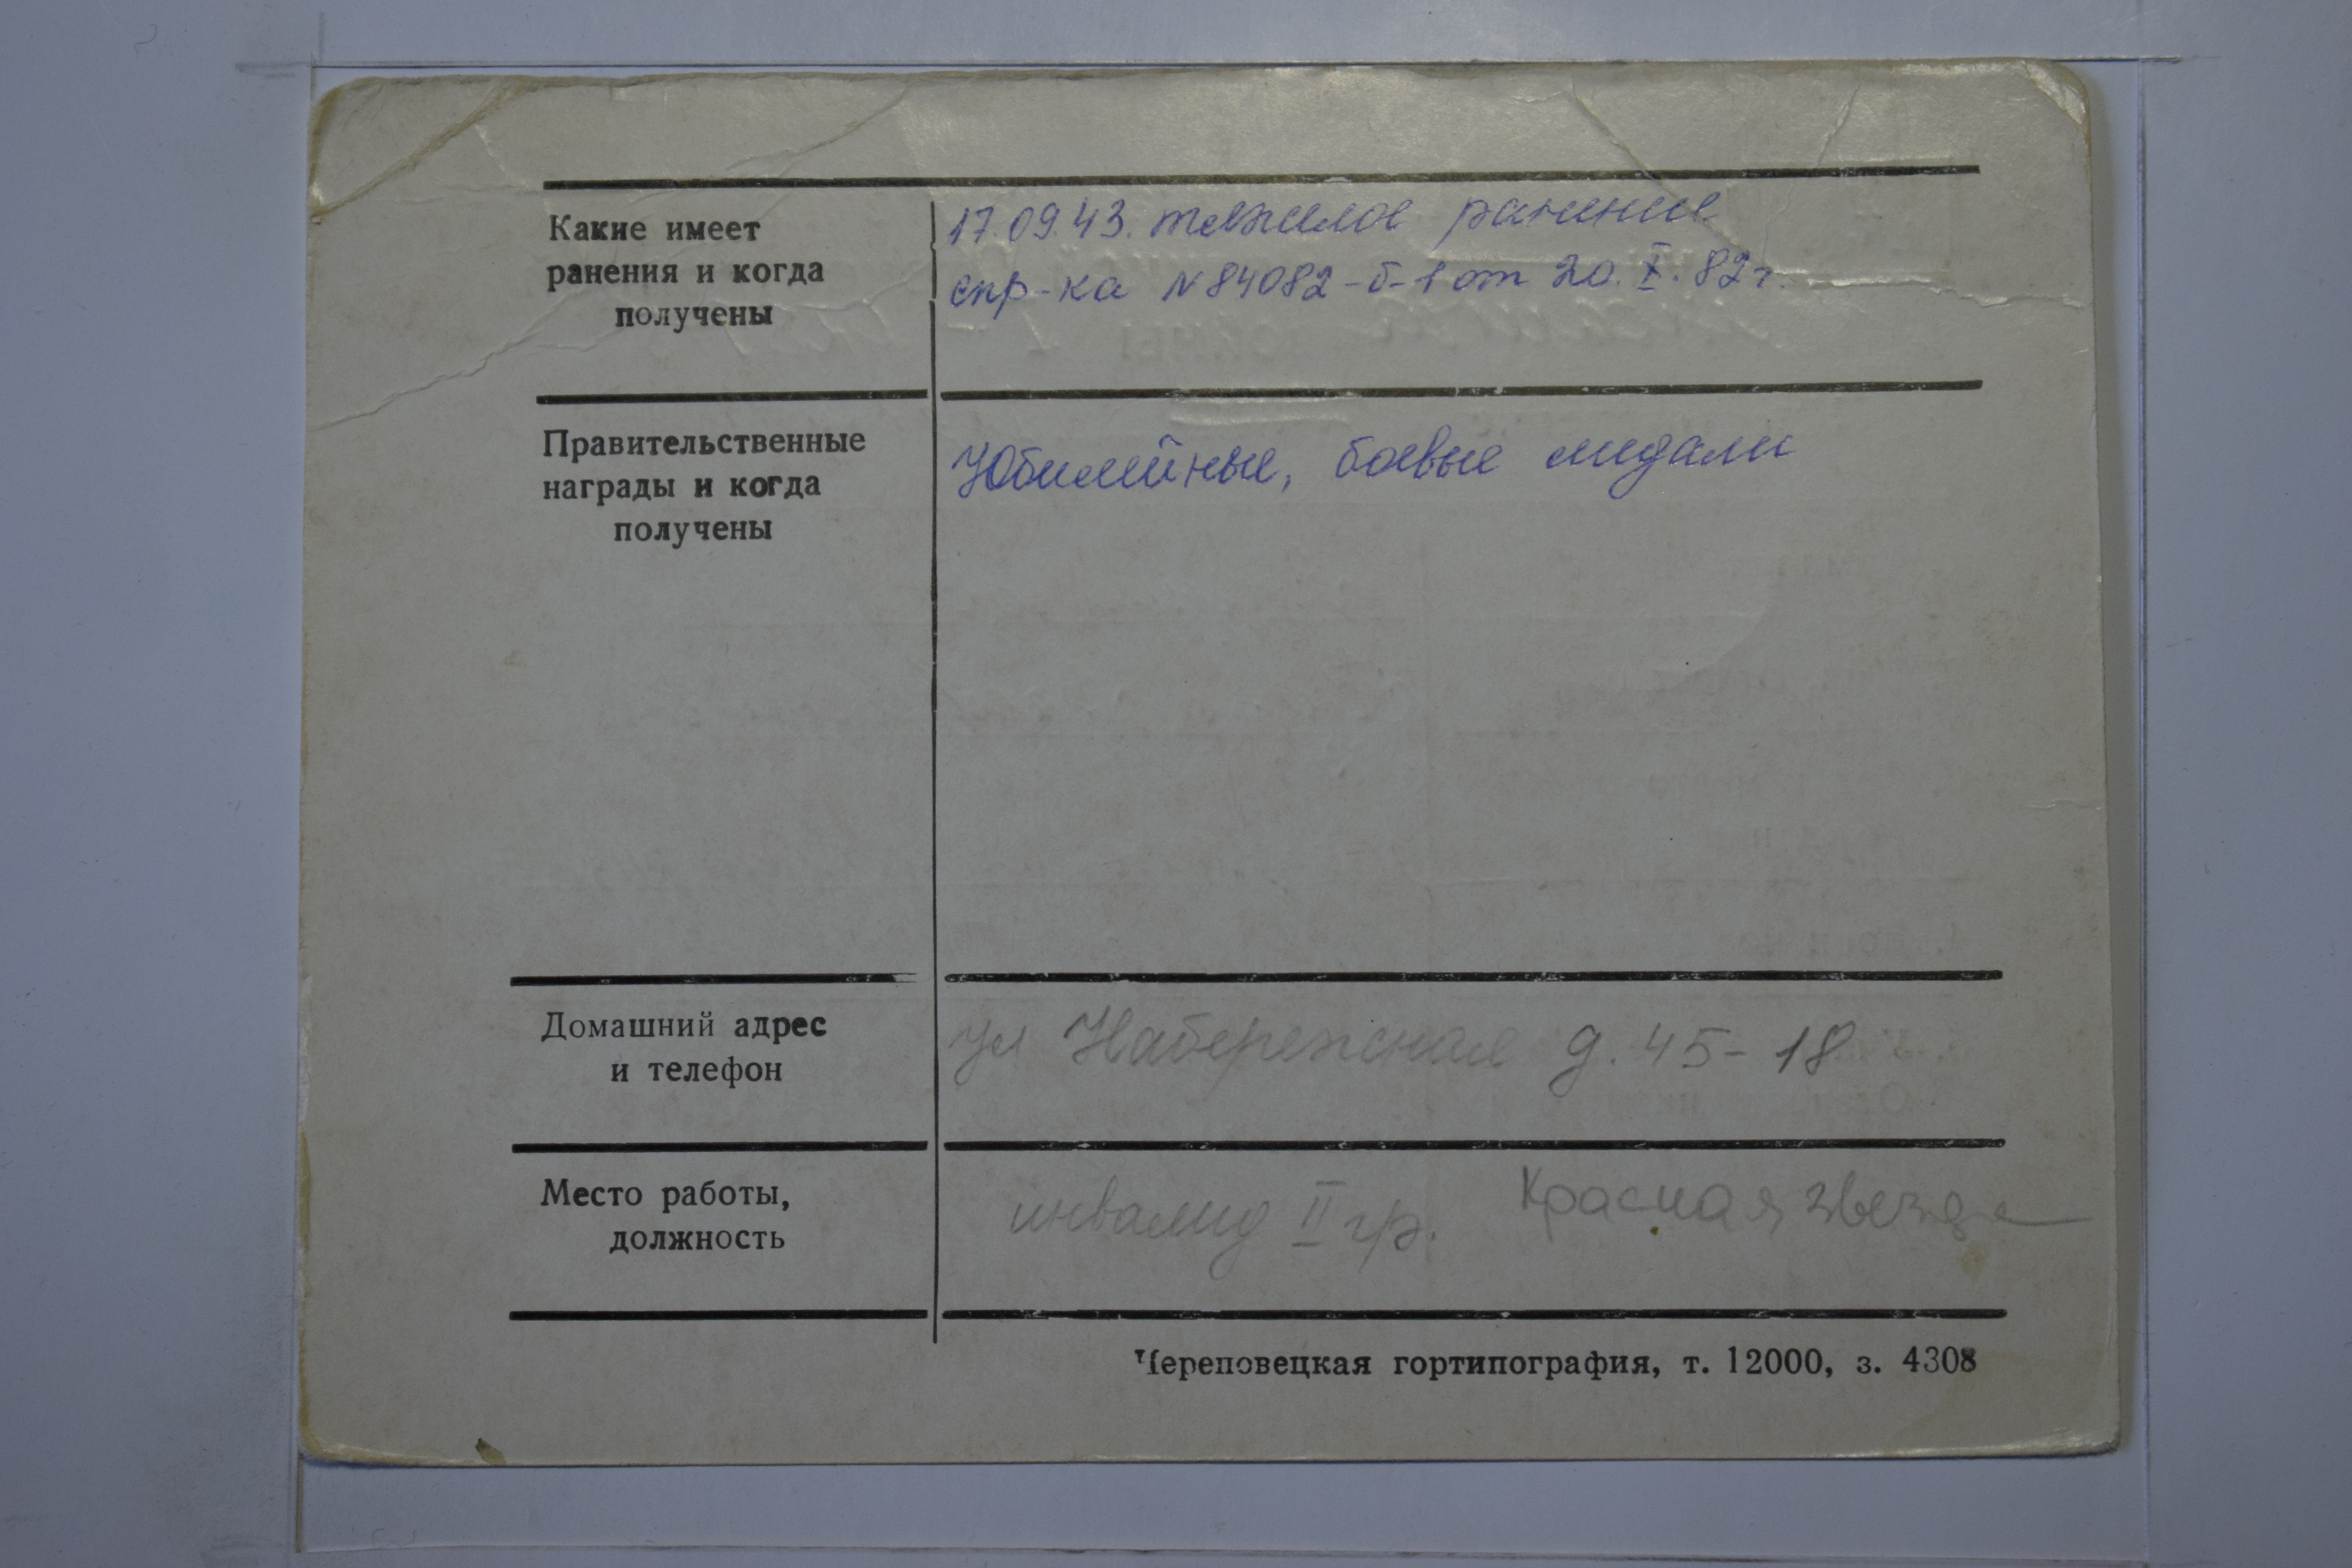 Какие имеет
ранения и когда
получены
17.09.43. тяжелое ранение
спр-ка N 84082-б-1 от 20.X.82 г.
Правительственные
награды и когда
получены
Юбилейные, боевые медали
Домашний адрес
и телефон
ул Набережная д. 45-18
Место работы,
должность
инвалид II гр. Красная звезда
Череповецкая гортипография, т. 12000, з. 4308